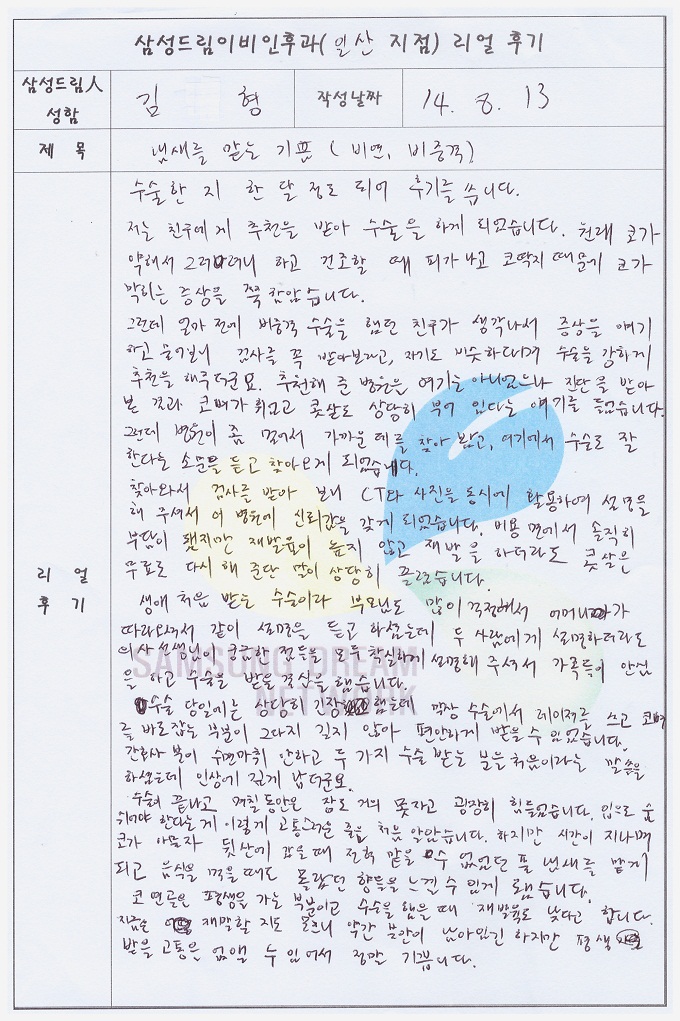 삼성드림이비인후과(일산 지점) 리얼 후기
삼성드림人 성함
김 형
작성날짜
14. 8. 13
제 목
냄새를 맡는 기쁨 ( 비염, 비중격)
리 얼
후 기
수술한 지 한 달 정도 되어 후기를 씁니다.
저는 친구에게 추천을 받아 수술을 하게 되었습니다. 천래 코가
약해서 그러려니 하고 건조할 때 피가 나고 코딱지 때문에 코가
막히는 증상을 쭉 참았습니다.
그런데 얼마 전에 비중격 수술을 했던 친구가 생각나서 증상을 얘기
하고 물어보니 검사를 꼭 받아보라고, 자기도 비슷하다며 수술을 강하게
추천을 해주더군요. 추천해 준 병원은 여기는 아니었으나 진단을 받아
본 결과 코뼈가 휘고 콧살도 상당히 부어 있다는 얘기를 들었습니다.
그런데 병원이 좀 멀어서 가까운 데를 찾아 봤고, 여기에서 수술로 잘
한다는 소문을 듣고 찾아오게 되었습니다.
찾아와서 검사를 받아 보니 CT와 사진을 동시에 활용하여 설명을
해 주셔서 이 병원에 신뢰감을 갖게 되었습니다. 비용 면에서 솔직히
부담이 됐지만 재발율이 높지 않고 재발을 하더라도 콧살은
무료로 다시 해 준단 말이 상당히 끌렸습니다.
생애 처음 받는 수술이라 부모님도 많이 걱정해서 어머니가
따라오셔서 같이 설명을 듣고 하셨는데 두 사람에게 설명하더라도
의사 선생님이 궁금한 것들을 모두 착실하게 설명해 주셔서 가족들이 안심
을 하고 수술을 받을 결심을 했습니다.
수술 당일에는 상당히 긴장했는데 막상 수술에서 레이저를 쓰고 코뼈
를 바로잡는 부분이 그다지 길지 않아 편안하게 받을 수 있었습니다.
간호사 분이 수면마취 안하고 두 가지 수술 받는 분을 처음이라는 말씀을
하셨는데 인상에 깊게 남더군요.
수술이 끝나고 며칠동안은 잠도 거의 못자고 굉장히 힘들었습니다. 입으로 숨
쉬어야 한다는게 이렇게 고통스러운 줄을 처음 알았습니다. 하지만 시간이 지나며
코가 아물자 뒷산에 갔을 때 전혀 맡을 수 없었던 풀 냄새를 맡게
되고 음식을 먹을 때도 몰랐던 향들을 느낄 수 있게 됐습니다.
코 연골은 평생을 가는 부분이고 수술을 했을 때 재발율도 낮다고 합니다.
지금은 재발할 지도 모르니 약간 불안이 남아있긴 하지만 평생
받을 고통은 없앨 수 있어서 정말 기쁩니다.
SAMSUNG DREAM
NETWORK